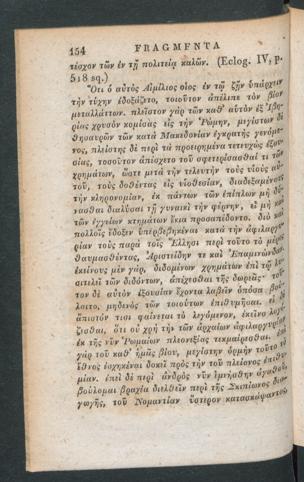 154 FRAGMENTA
τέσχον τῶν ἐν τῇ πολιτείᾳ καλῶν. (Eclog. IV, p.
518 sq.)
Ὅτι ὁ αὐτὸς Αἰμίλιος οἷος ἐν τῷ ζῆν ὑπάρχειν
τὴν τύχην ἐδοξάζετο, τοιοῦτον ἀπέλιπε τὸν βίον
μεταλλάττων. πλεῖστον γὰρ τῶν καθ' αὑτὸν ἐξ Ἰβη-
ρίας χρυσὸν κομίσας εἰς τὴν Ῥώμην, μεγίστων δὲ
θησαυρῶν τῶν κατὰ Μακεδονίαν ἐγκρατὴς γενόμε-
νος, πλείστης δὲ περὶ τὰ προειρημένα τετευχὼς ἐξου-
σίας, τοσοῦτον ἀπέσχετο τοῦ σφετερίσασθαί τι τῶν
χρημάτων, ὥστε μετὰ τὴν τελευτὴν τοὺς υἱοὺς αὐ-
τοῦ, τοὺς δοθέντας εἰς υἱοθεσίαν, διαδεξαμένους
τὴν κληρονομίαν, ἐκ πάντων τῶν ἐπίπλων μὴ δύ-
νασθαι διαλῦσαι τῇ γυναικὶ τὴν φέρνην, εἰ μὴ καὶ
τῶν ἐγγείων κτημάτων ἔνια προσαπέδοντο. διὸ καὶ
πολλοῖς ἔδοξεν ὑπερβεβηκέναι κατὰ τὴν ἀφιλαργυ-
ρίαν τοὺς παρὰ τοῖς Ἕλλησι περὶ τοῦτο τὸ μέρος
θαυμασθέντας, Ἀριστείδην τε καὶ Ἐπαμινώνδαν.
ἐκείνους μὲν γὰρ, διδομένων χρημάτων ἐπὶ τῷ λυ-
σιτελεῖ τῶν διδόντων, ἀπέχεσθαι τῆς δωρεᾶς·
τον δὲ αὐτὸν ἐξουσίαν ἔχοντα λαβεῖν ὁπόσα βού-
λοιτο, μηδενὸς τῶν τοιούτων ἐπιθυμῆσαι. εἰ δὲ
ἄπιστόν τισι φαίνεται τὸ λεγόμενον, ἐκεῖνο λογι-
ζέσθαι, ὅτι οὐ χρὴ τὴν τῶν ἀρχαίων ἀφιλαργυρίαν
ἐκ τῆς νῦν Ῥωμαίων πλεονεξίας τεκμαίρεσθαι.
γὰρ τοῦ καθ' ἡμᾶς βίου, μεγίστην ὁρμὴν τοῦτο τὸ
ἔθνος ἐσχηκέναι δοκεῖ πρὸς τὴν τοῦ πλείονος ἐπιθυ-
μίαν. ἐπεὶ δὲ περὶ ἀνδρὸς νῦν ἐμνήσθην ἀγαθοῦ,
βούλομαι βραχέα διελθεῖν περὶ τῆς Σκιπίωνος δια-
γωγῆς, τοῦ Νομαντίαν ὕστερον κατασκάψαντος,